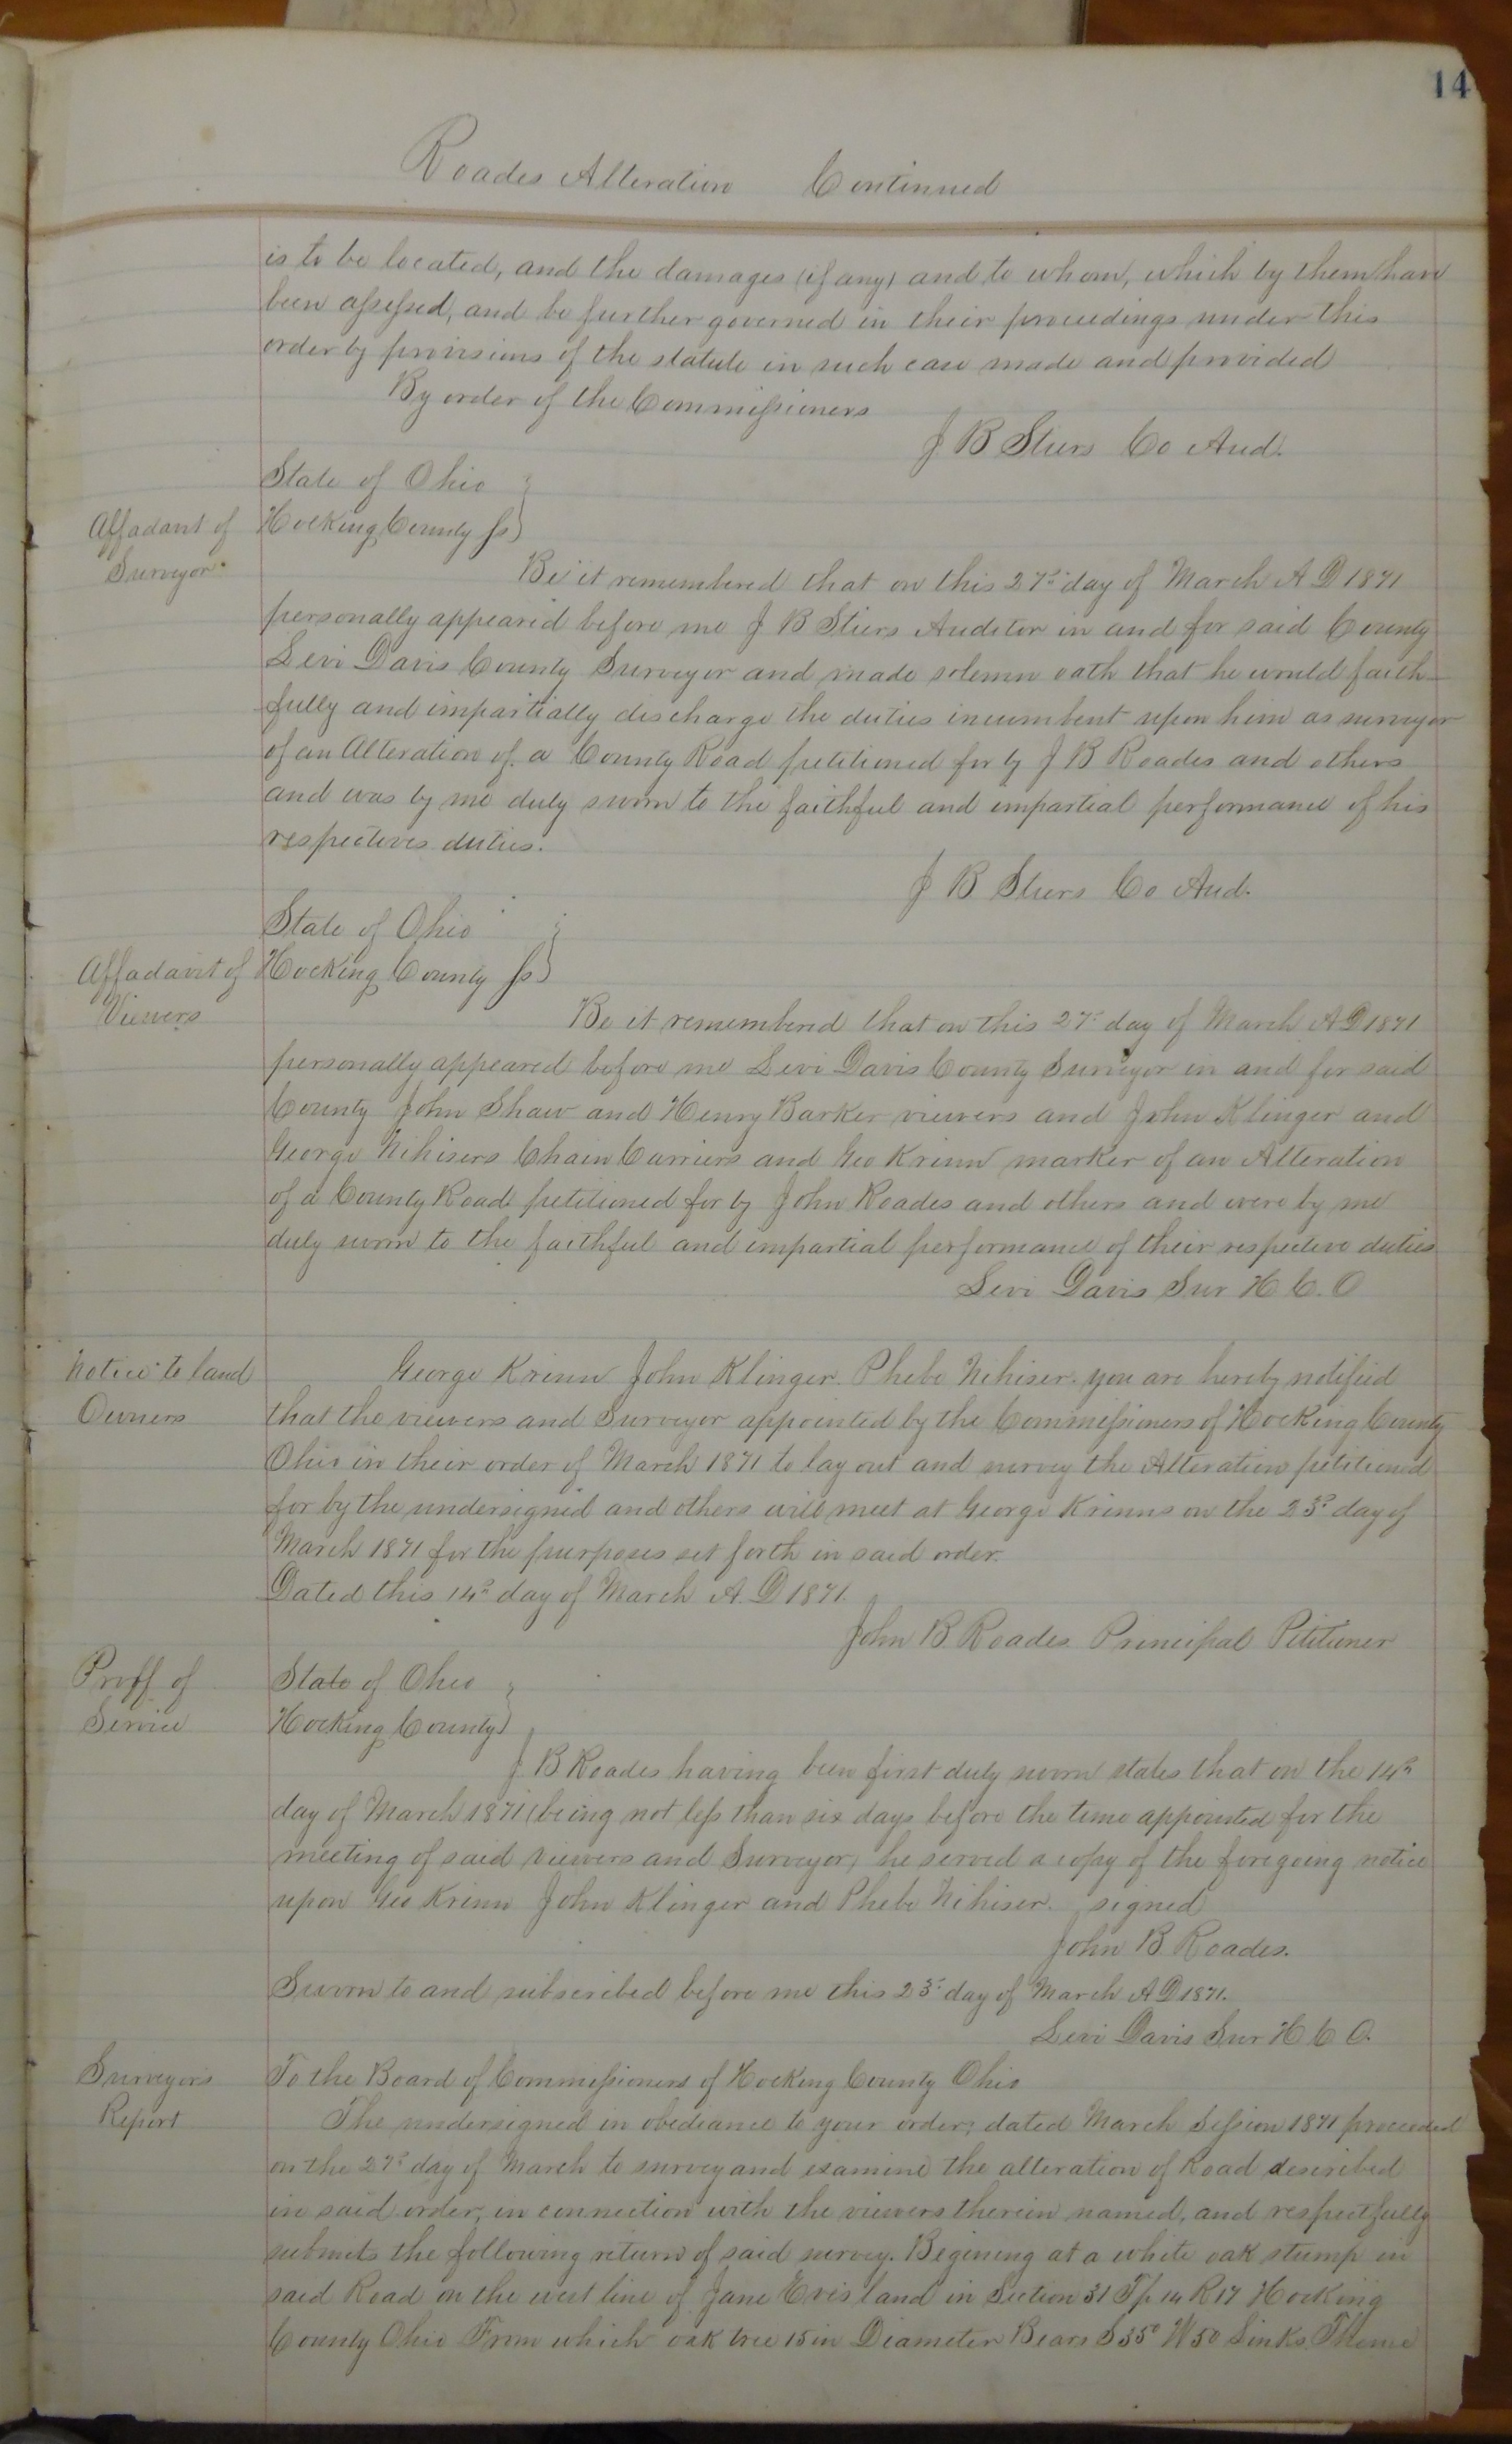 14
Roades Alteration Continued
is to be located, and the damages (if any) and to whom, which by them have
been assessed, and be further governed in their proceedings under this
order by provisions of the statute in such case made and provided
By order of the Commissioners
J B Stiers Co Aud.
State of Ohio
Affadavit of
Surveyor
Hocking County ss
Be it remembered that on this 27th day of March A D 1871
personally appeared before me J B Stiers Auditor in and for said County
Levi Davis County Surveyor and made solemn oath that he would faith-
fully and impartially discharge the duties incumbent upon him as surveyor
of an Alteration of a County Road petitioned for by J B Roades and others
and was by me duly sworn to the faithful and impartial performance of his
respectives duties.
J B Stiers Co Aud.
State of Ohio
Affadavit of
Viewers
Hocking County ss
Be it remembered that on this 27th day of March A D 1871
personally appeared before me Levi Davis County Surveyor in and for said
County John Shaw and Henry Barker viewers and John Klinger and
George Nihisers Chain Carriers and Geo Krinn marker of an Alteration
of a County Road petitioned for by John Roades and others and were by me
duly sworn to the faithful and impartial performance of their respective duties
Levi Davis Sur H C. O
Notice to land
Owners
George Krinn John Klinger. Phebe Nihiser. you are hereby notified
that the viewers and Surveyor appointed by the Commissioners of Hocking County
Ohio in their order of March 1871 to lay out and survey the Alteration petitioned
for by the undersigned and others will meet at George Krinns on the 23d day of
March 1871 for the purposes set forth in said order.
Dated this 14th day of March A. D 1871.
John B Roades Principal Petitioner
Proff of
Service
State of Ohio
Hocking County
J B Roades having been first duly sworn states that on the 14th
day of March 1871 (being not less than six days before the time appointed for the
meeting of said viewers and Surveyor) he served a copy of the foregoing notice
upon Geo Krinn John Klinger and Phebe Nihiser. signed
John B Roades.
Sworn to and subscribed before me this 23d day of March A D 1871.
Levi Davis Sur H C O.
Surveyors
Report
To the Board of Commissioners of Hocking County Ohio
The undersigned in obediance to your order, dated March Session 1871 proceeded
on the 27th day of March to survey and examine the alteration of Road described
in said order, in connection with the viewers therein named, and respectfully
submits the following return of said survey. Begining at a white oak stump in
said Road on the west line of Jane land in Section 31 Tp 14 R 17 Hocking
County Ohio From which oak tree 15 in Diameter Bears S 35° W 50 Links Thence